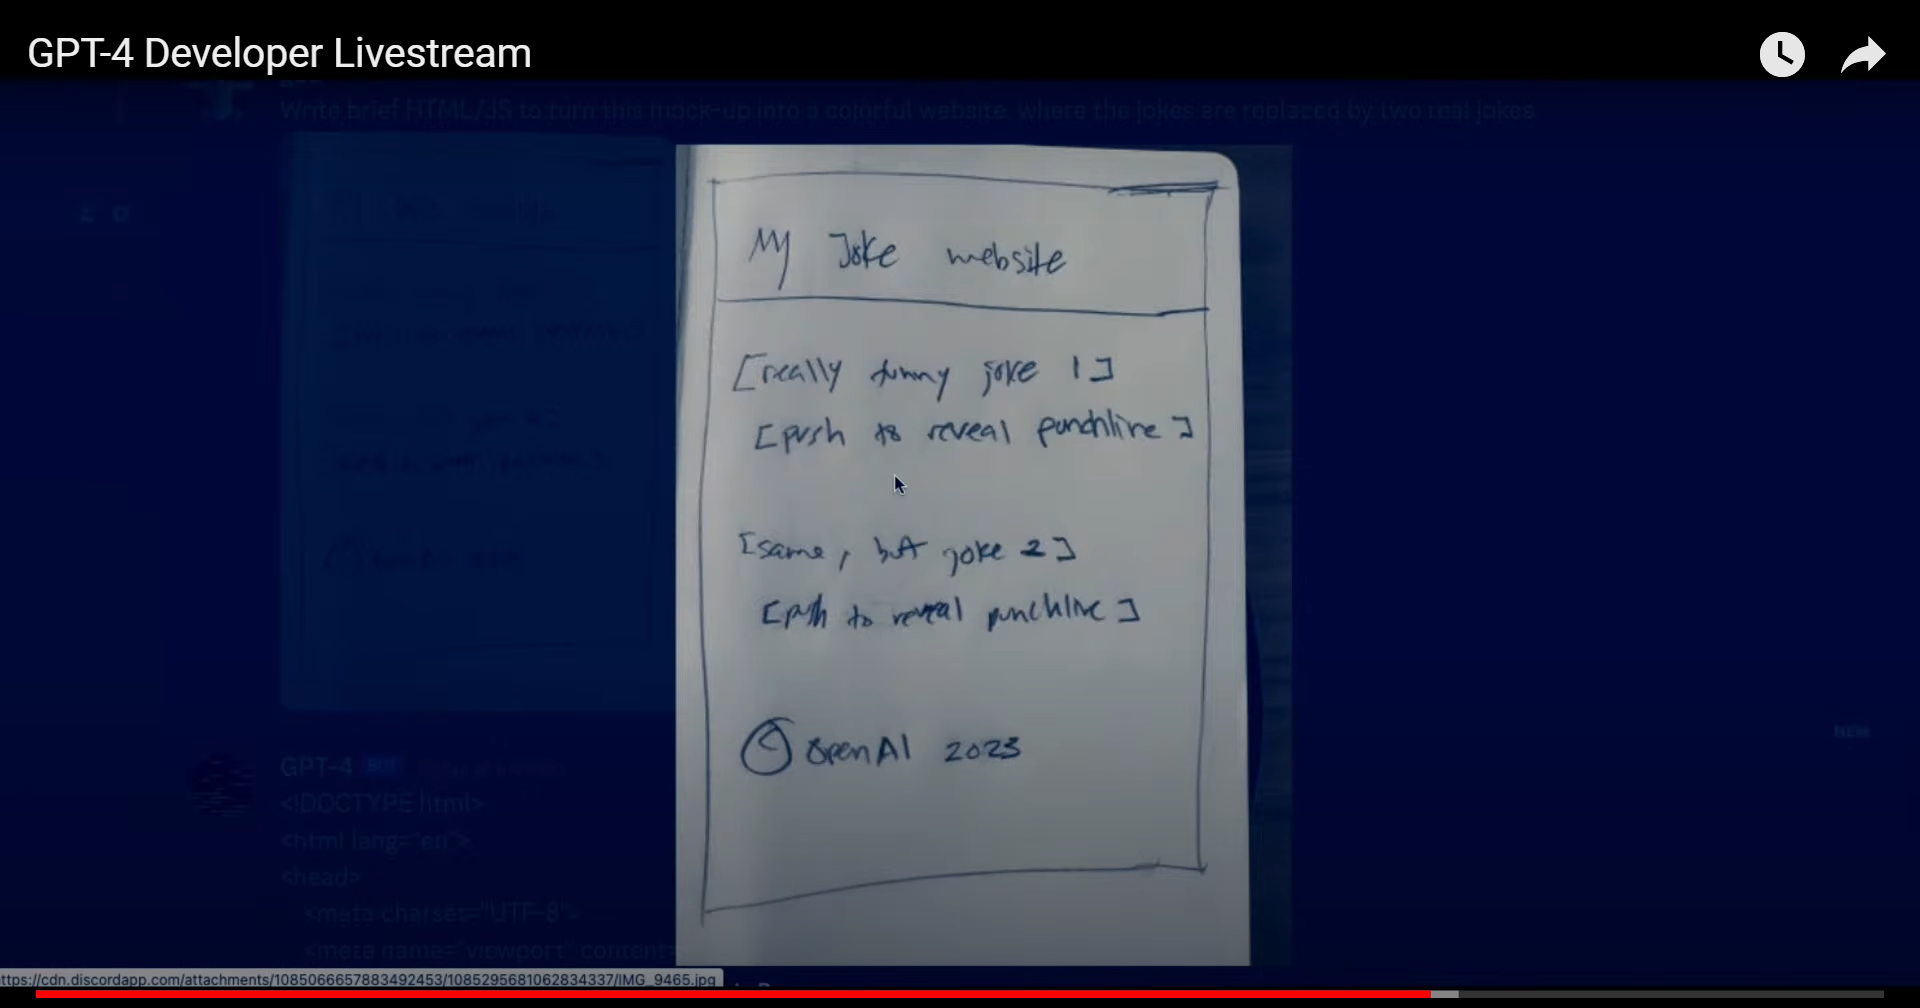 GPT-4 Developer Livestream
Write brief HTML/JS to turn this mock-up into a colorful website, where the jokes are replaced by two real jokes
My Joke website
[really funny joke 1]
[push to reveal punchline]
[same, but joke 2]
[push to reveal punchline]
© OpenAI 2023
NEW
GPT-4 BOT
<!DOCTYPE html>
<html lang="en">
<head>
<meta charset="UTF-8">
<meta name="viewport" content=
ttps://cdn.discordapp.com/attachments/1085066657883492453/1085295681062834337/IMG_9465.jpg